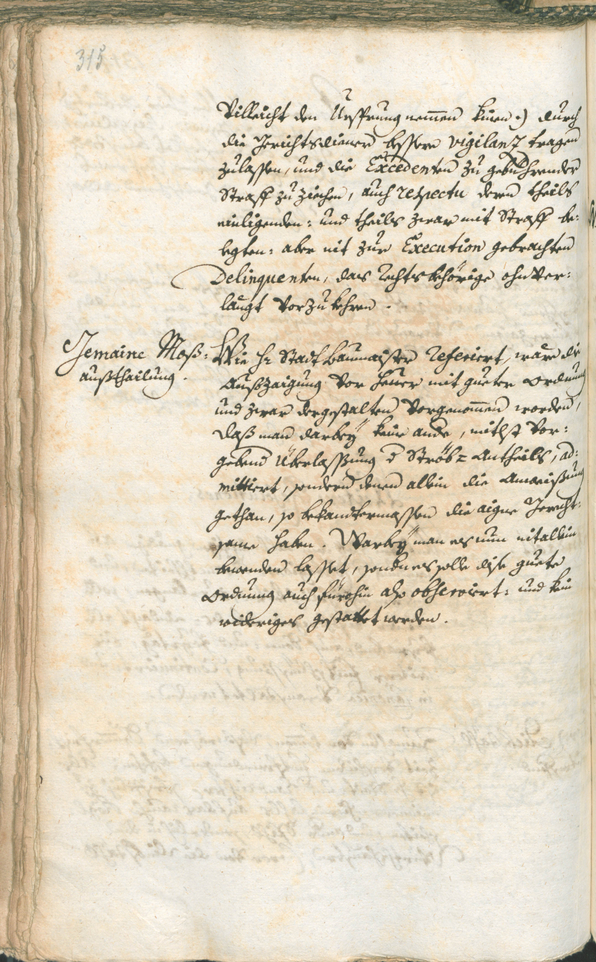 315
villeicht den Ursprung nemmen kinen :) durch
die Gerichtsdiener bessere vigilanz tragen
zulassen, und die Excedenten zu gebührender
Straff zu ziechen, auch respectu deren theils
einligenden: und theils zwar mit Straff be-
legten: aber nit zur Execution gebrachten
Delinquenten, das rechtsbehörige ohnver-
langt vorzukehren.
Gemaine Moß-
außthaillung.
Wie Hr Stadt Baumaister referiert, wäre die
Außzaigung vor heuer mit gueter ordnung
und zwar dergestalten vorgenommen worden,
daß man darbey keine ande, mitlst vor-
gebend überlassung d Ströb Antheils, ad-
mittiert, sondern denen allein die Anweißung
gethan, so bekantermassen die aigne Gerecht-
same haben. Warbey man es nun nit allein
bewenden lasset, sondern es solle dise guete
ordnung auch fürohin also observiert: und kein
wideriges gestattet werden.